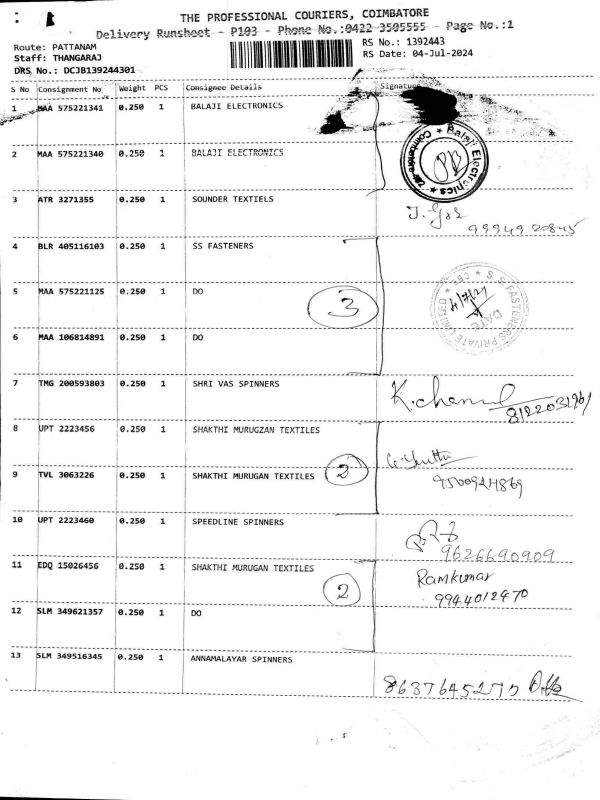 THE PROFESSIONAL COURIERS, COIMBATORE
Delivery Runsheet - P103 - Phone No.:0422 3505555 - Page No.:1
Route: PATTANAM
RS No.: 1392443
Staff: THANGARAJ
RS Date: 04-Jul-2024
DRS No.: DCJB139244301
S No Consignment No Weight PCS Consignee Details Signature
1 MAA 575221341 0.250 1 BALAJI ELECTRONICS
Balaji Electronics
Coimbatore
2 MAA 575221340 0.250 1 BALAJI ELECTRONICS
3 ATR 3271355 0.250 1 SOUNDER TEXTIELS
99949 20845
4 BLR 405116103 0.250 1 SS FASTENERS
S.S. FASTENERS PRIVATE LIMITED CBE
DATE
5 MAA 575221125 0.250 1 DO 3
6 MAA 106814891 0.250 1 DO
7 TMG 200593803 0.250 1 SHRI VAS SPINNERS
8122031961
8 UPT 2223456 0.250 1 SHAKTHI MURUGZAN TEXTILES
9 TVL 3063226 0.250 1 SHAKTHI MURUGAN TEXTILES 2
10 UPT 2223460 0.250 1 SPEEDLINE SPINNERS
9626690909
11 EDQ 15026456 0.250 1 SHAKTHI MURUGAN TEXTILES 2
Ramkumar
9944012470
12 SLM 349621357 0.250 1 DO
13 SLM 349516345 0.250 1 ANNAMALAYAR SPINNERS